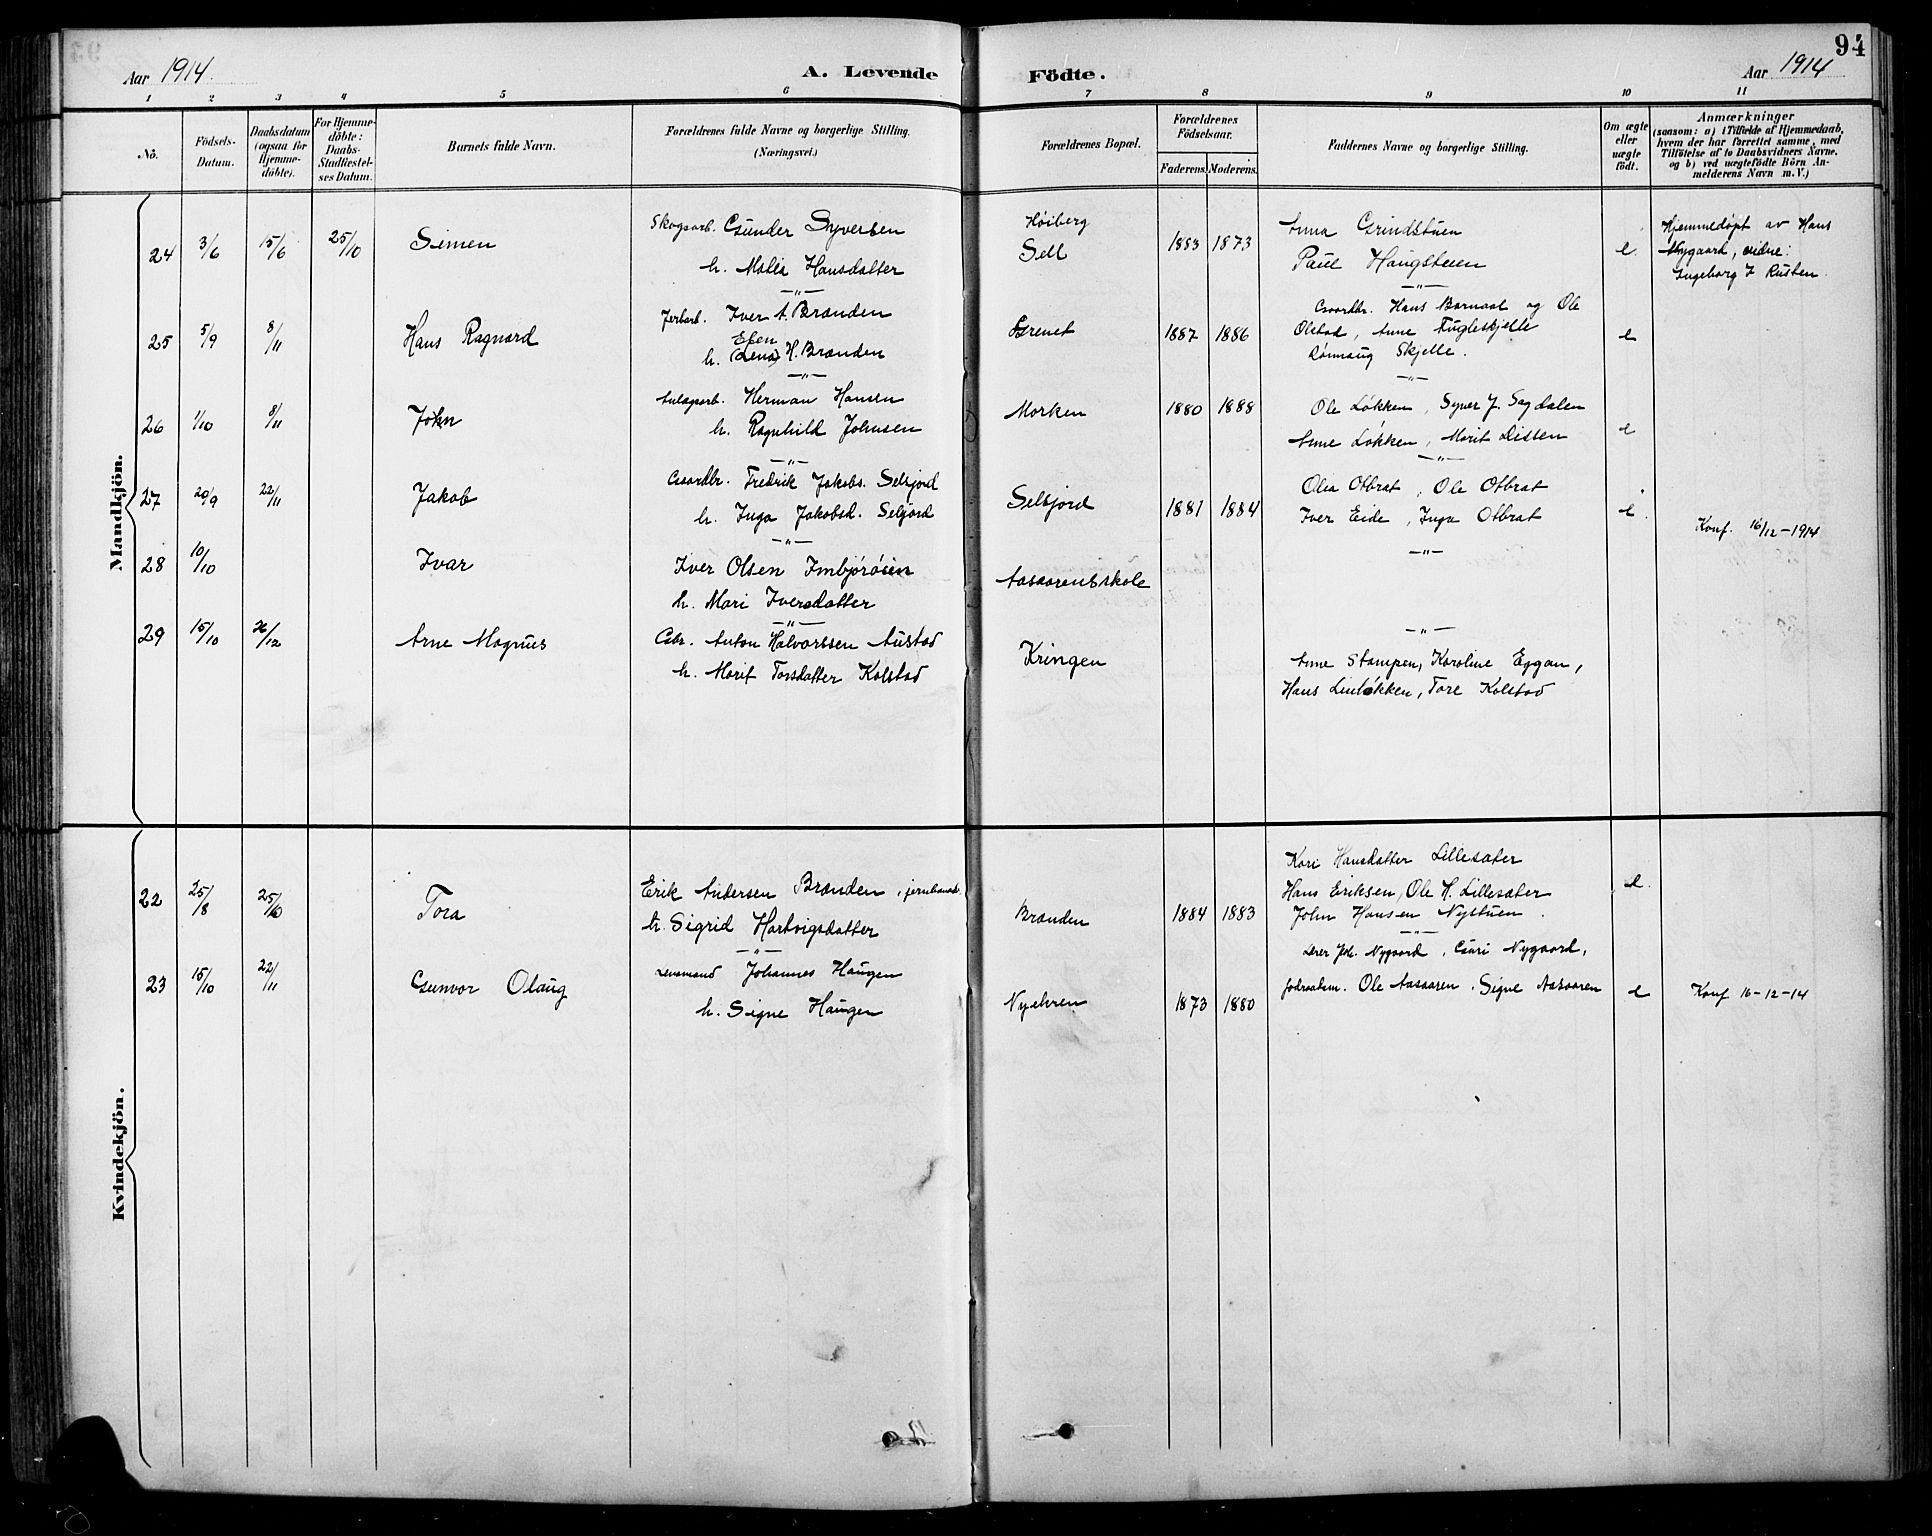 94
Aar 1914.
A. Levende Födte.
Aar 1914
1 2 3 4 5 6 7 8 9 10 11
No.
Födsels-Datum.
Daabsdatum (ogsaa for Hjemmedöbte).
For Hjemmedöbte: Daabs-Stadfæstelses Datum.
Barnets fulde Navn.
Forældrenes fulde Navne og borgerlige Stilling. (Næringsvei.)
Forældrenes Bopæl.
Forældrenes Födselsaar.
Faderens. Moderens.
Faddernes Navne og borgerlige Stilling.
Om ægte eller uægte födt.
Anmærkninger (saasom: a) i Tilfælde af Hjemmedaab, hvem der har forrettet samme, med Tilföielse af to Daabsvidners Navne. og b) ved uægtefödte Börn Anmelderens Navn m. V.)
Mandkjön.
24 3/6 15/6 25/10 Simen
Skogsarb. Gunder Syversen
h. Malia Hansdatter
Høiberg
Sell
1883 1873
Anna Grindstuen
Paul Haugstuen
e.
Hjemmedøpt av Hans
Nygaard, vidne:
Ingeborg I Rusten.
25 5/9 8/11 Hans Ragnard
Jerbarb. Iver A. Brænden
Eben
h. (Lena) H. Brænden
Grenet
1887 1886
Gaardbr. Hans Barnaal og Ole
Olstad, Anne Fugleskjelle
Rønnaug Skjelle.
e
26 1/10 8/11 John
Anlægsarb. Herman Hansen
h. Ragnhild Johnsen
Morken
1880 1888
Ole Løkken, Syver J. Sagdalen
Anne Løkken, Marit Listen
e
27 20/9 22/11 Jakob
Gaardbr. Fredrik Jakobs. Selsjord
h. Inga Jakobsd. Seljord
Selsjord
1881 1884
Olia Otbrat, Ole Otbrat
Iver Eide, Inga Otbrat
e.
Konf. 16/12-1914
28 10/10 Ivar
Iver Olsen Imbjørøien
h. Mari Iversdatter
Aasaarenskole
29 15/10 26/12 Arne Magnus
Gbr. Anton Halvorssen Austad
h. Marit Torsdatter Kolstad
Kringen
Anne Stampen, Karoline Eggan,
Hans Linløkken, Tore Kolstad
Kvindekjön.
22 25/8 25/10 Tora
Erik Andersen Brænden, jernbanearb.
h. Sigrid Hartvigsdatter
Brænden
1884 1883
Kari Hansdatter Lillesæter
Hans Eriksen, Ole H. Lillesæter
John Hansen Nystuen.
e.
23 15/10 22/11 Gunvor Olaug
Lensmand Johannes Haugen
h. Signe Haugen
Nyehren
1873 1880
Lærer Joh. Nygaard, Guri Nygaard,
Ole Aasaaren, Signe Aasaaren
e
Konf 16-12-14